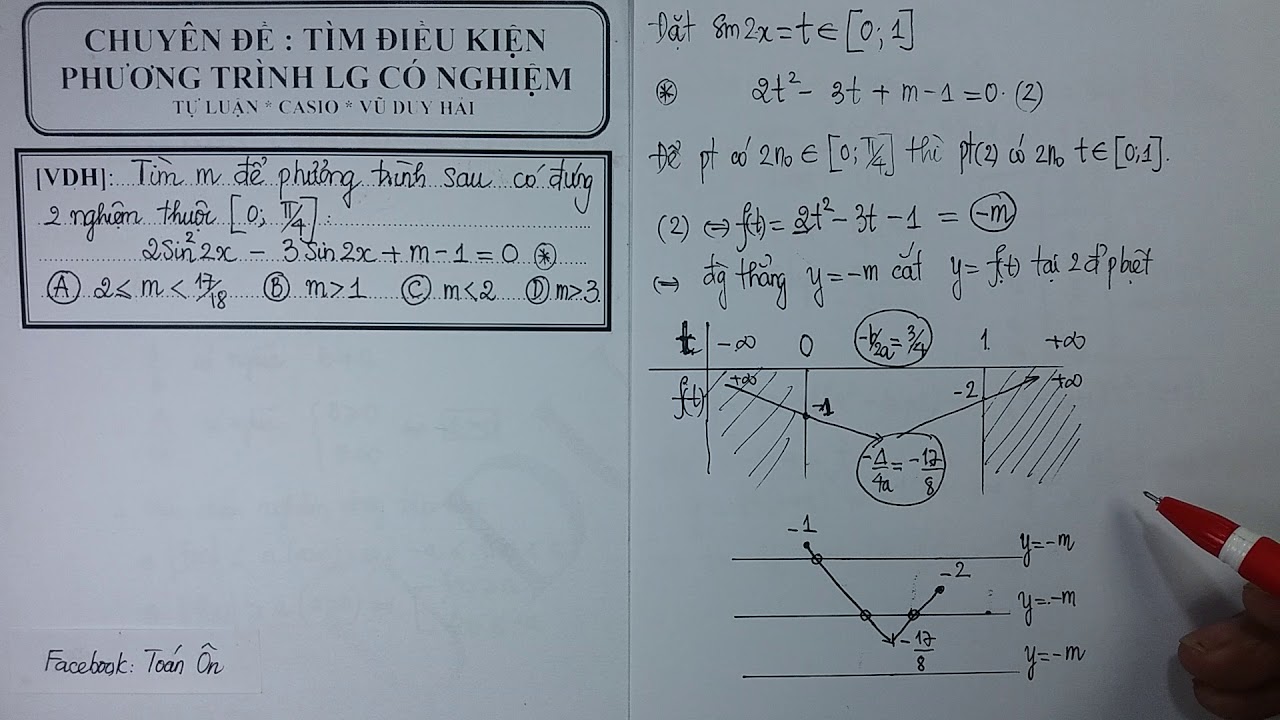 CHUYÊN ĐỀ : TÌM ĐIỀU KIỆN
PHƯƠNG TRÌNH LG CÓ NGHIỆM
TỰ LUẬN * CASIO * VŨ DUY HẢI
[VDH]: Tìm m để phương trình sau có đúng
2 nghiệm thuộc [0; π/4] :
2sin²2x - 3sin2x + m - 1 = 0 (*)
(A) 2 ≤ m < 17/18 (B) m > 1 (C) m < 2 (D) m > 3
Facebook: Toán Ôn
Đặt sin2x = t ∈ [0; 1]
(*) 2t² - 3t + m - 1 = 0. (2)
Để pt có 2n₀ ∈ [0; π/4] thì pt(2) có 2n₀ t ∈ [0;1].
(2) ⇔ f(t) = 2t² - 3t - 1 = -m
⇔ đg thẳng y = -m cắt y = f(t) tại 2 đ' pbiệt
t -∞ 0 -b/2a = 3/4 1 +∞
f(t) +∞ -1 -2 +∞
-Δ/4a = -17/8
-1
y = -m
-2
y = -m
-17/8
y = -m